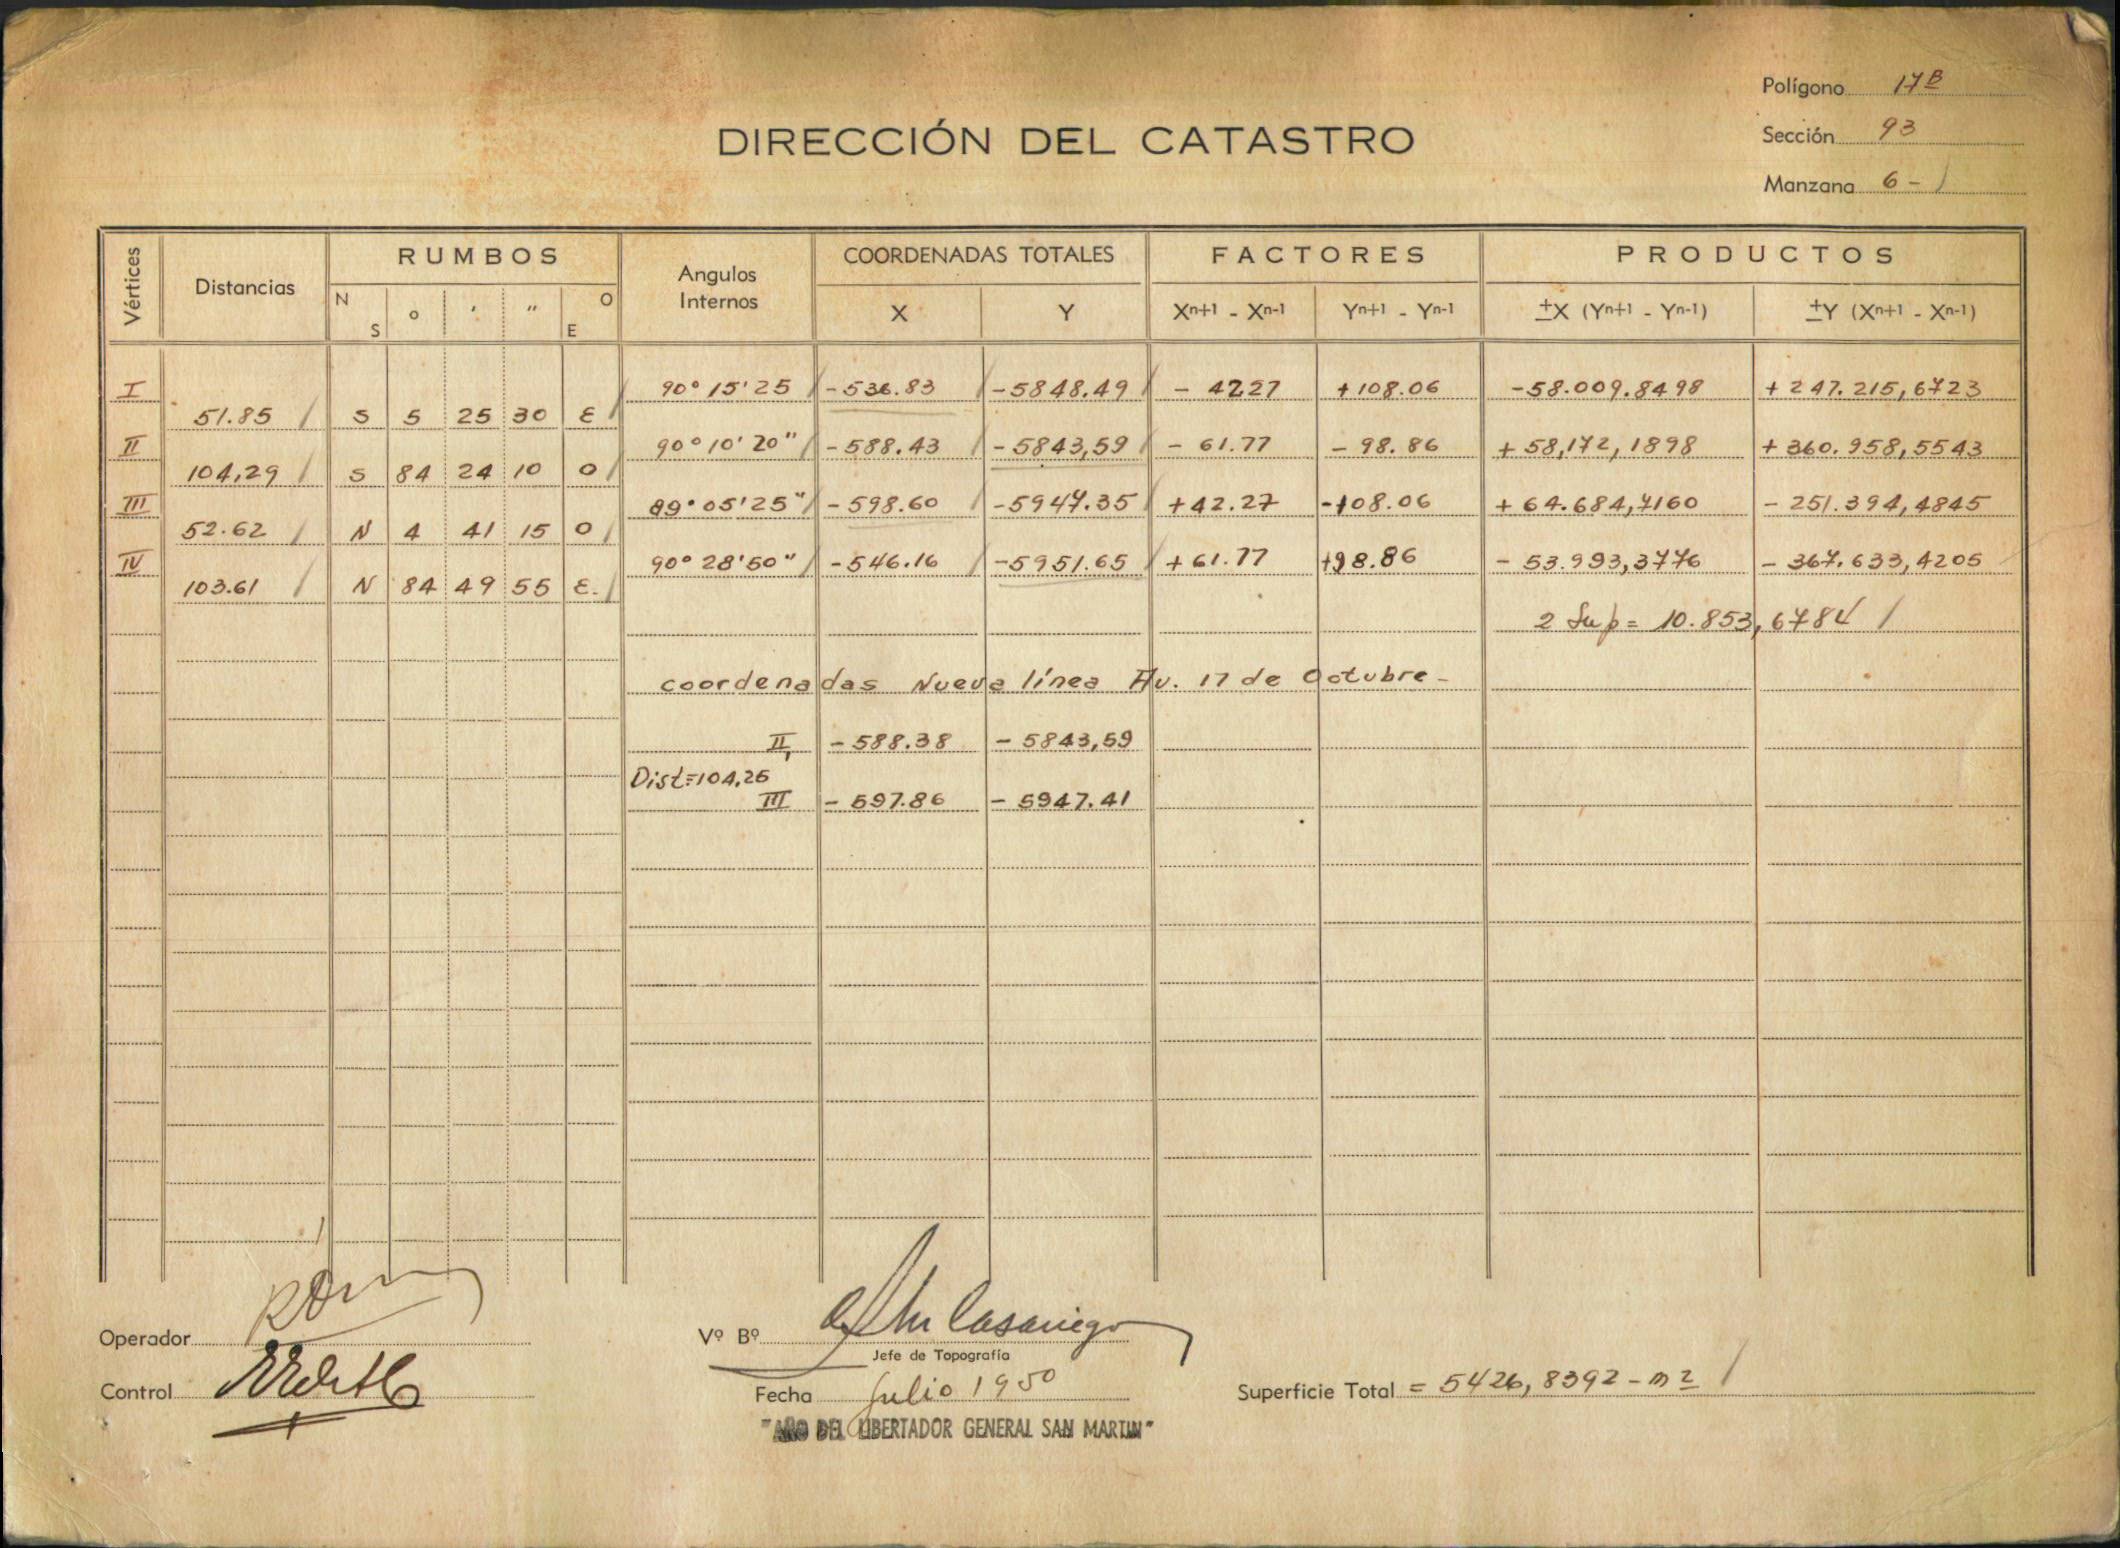 Polígono 17B
Sección 93
Manzana 6-1
DIRECCIÓN DEL CATASTRO
Vértices Distancias RUMBOS Angulos Internos COORDENADAS TOTALES FACTORES PRODUCTOS
N S ° ' " O E X Y Xn+1 - Xn-1 Yn+1 - Yn-1 ±X (Yn+1 - Yn-1) ±Y (Xn+1 - Xn-1)
I 90° 15' 25 -536.83 -5848.49 - 42.27 +108.06 -58.009.8498 +247.215,6723
51.85 S 5 25 30 E
II 90° 10' 20" -588.43 -5843,59 - 61.77 - 98.86 +58,172,1898 +360.958,5543
104,29 S 84 24 10 O
III 89° 05' 25" -598.60 -5947.35 +42.27 -108.06 +64.684,7160 -251.394,4845
52.62 N 4 41 15 O
IV 90° 28' 50" -546.16 -5951.65 +61.77 +98.86 -53.993,3776 -367.633,4205
103.61 N 84 49 55 E.
2 Sup = 10.853,6784
coordenadas Nueva línea Av. 17 de Octubre-
II, -588.38 -5843,59
Dist=104.25
III -597.86 -5947.41
Operador
Vº Bº Casariego
Jefe de Topografía
Control
Fecha Julio 1950
Superficie Total = 5426,8392-m2
"AÑO DEL LIBERTADOR GENERAL SAN MARTIN"